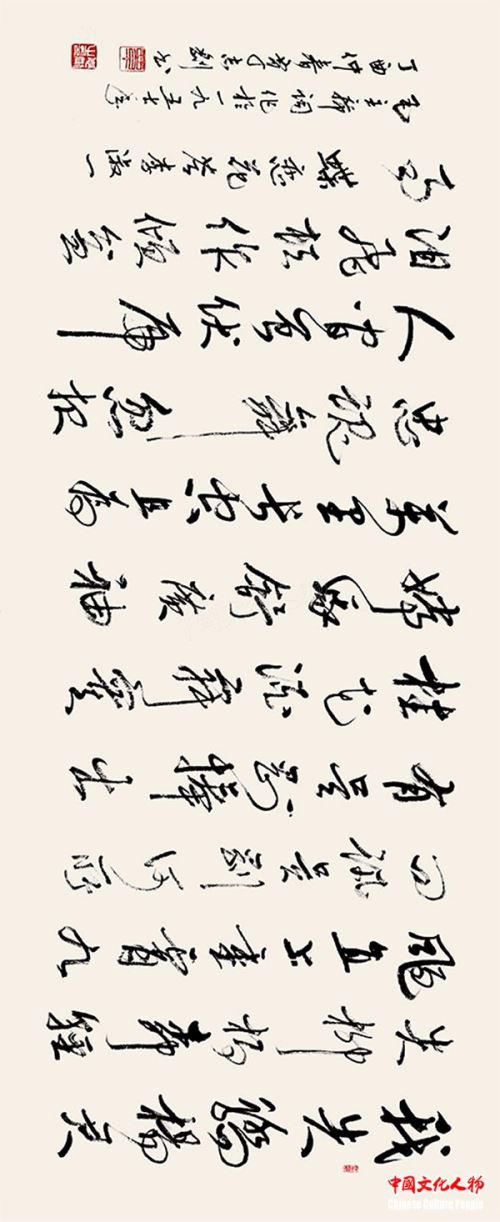 我失驕楊君
失柳楊柳輕
颺直上重霄九
問訊吳剛何所
有吳剛捧出
桂花酒寂寞
嫦娥舒廣袖
萬里長空且為
忠魂舞忽報
人間曾伏虎
淚飛頓作傾盆
雨 蝶戀花答李淑一
毛主席詞作於一九五七年
丁酉仲春 書
中國文化人物
Chinese Culture People